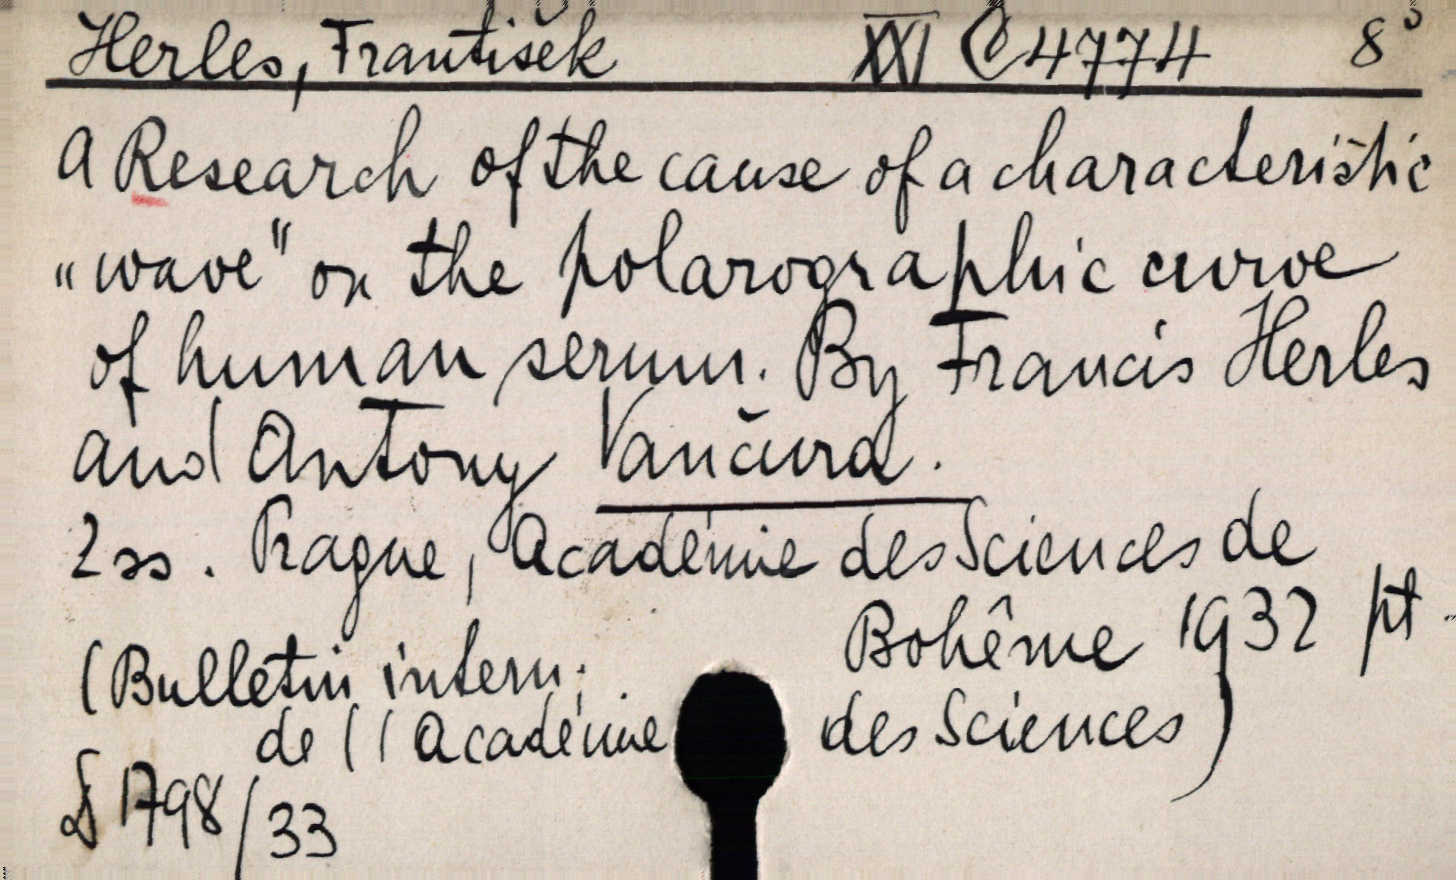 Herles, František XXI C 4774 8°
A Research of the cause of a characteristic
„wave" on the polarographic curve
of human serum. By Francis Herles
and Antony Vančura.
2 ss. Prague, Académie des Sciences de
Bohême 1932 pt.
(Bulletin intern.
de l'Académie des Sciences)
1798/33